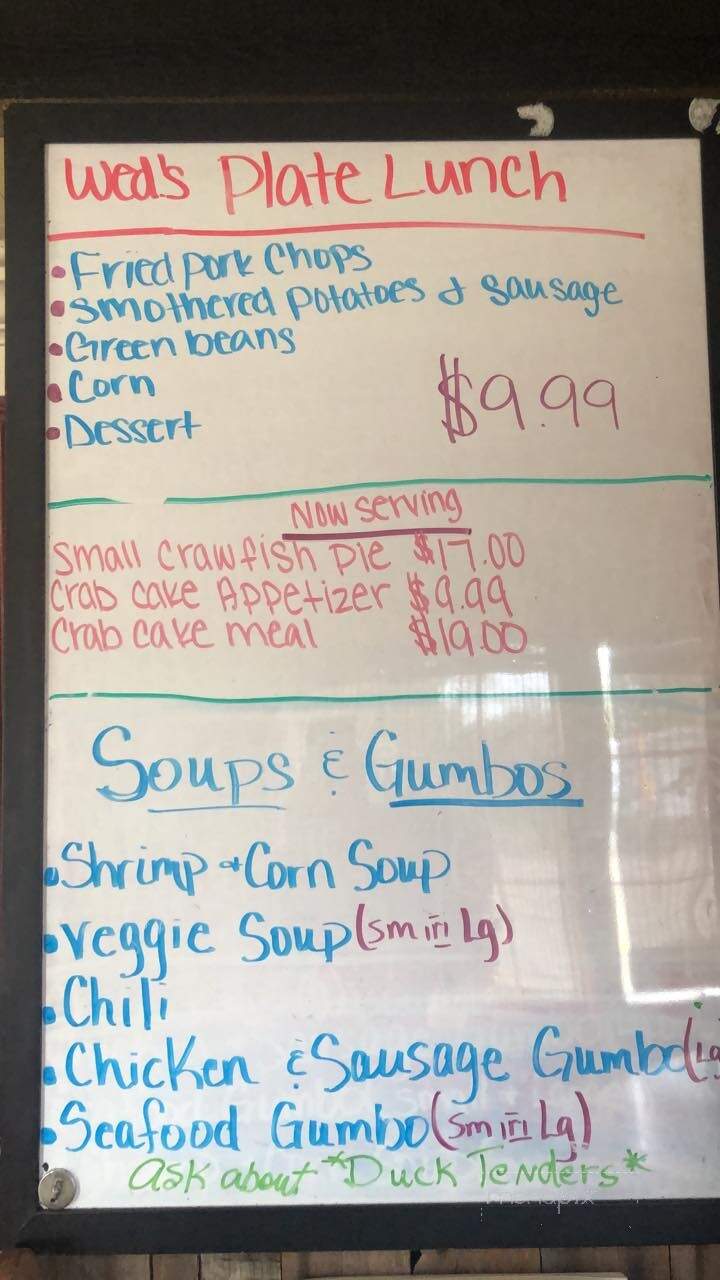 Wed's Plate Lunch
• Fried Pork Chops
• Smothered Potatoes & Sausage
• Green beans
• Corn
$9.99
• Dessert
Now Serving
Small Crawfish Pie $17.00
Crab Cake Appetizer $9.99
Crab Cake meal $19.00
Soups & Gumbos
• Shrimp + Corn Soup
• Veggie Soup (Sm Lg)
• Chili
• Chicken & Sausage Gumbo (Lg
• Seafood Gumbo (Sm Lg)
Ask about *Duck Tenders*